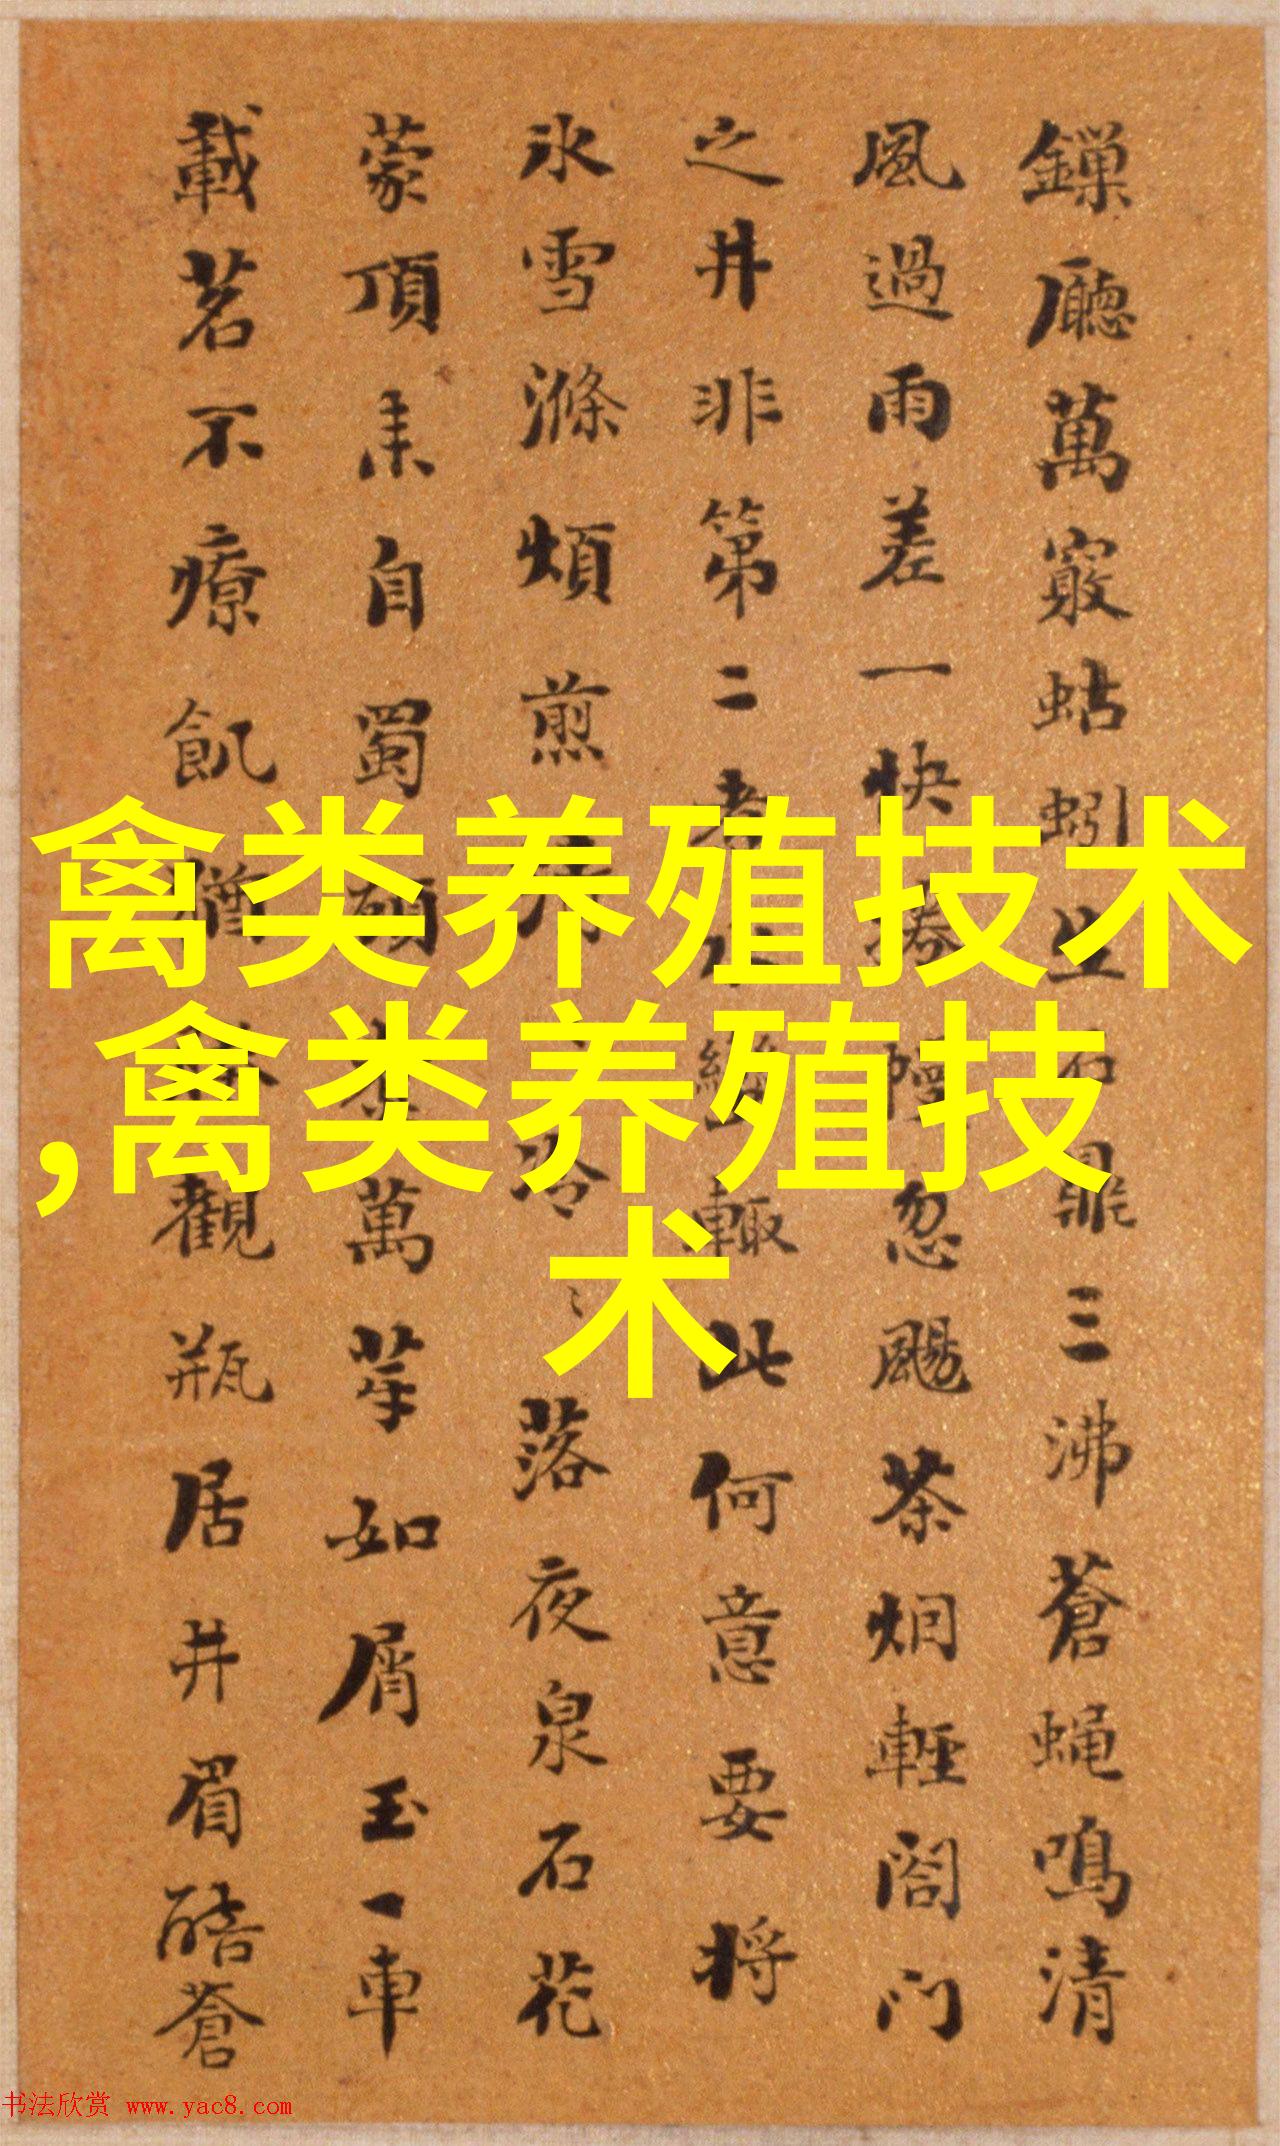 禽类养殖技术
,禽类养殖技
术
廳萬竅蛄蚓生石鼎三沸蒼蝇鳴清
風過雨差一快忽颺茶烟軽閤门
之井非第二者輙此何意要将
氷雪滌煩煎冷落夜泉石花
蒙頂来自蜀萬芽如屑玉一車
載茗不療飢僧觀瓶居井眉酷蒼
书法欣赏 www.yac8.com